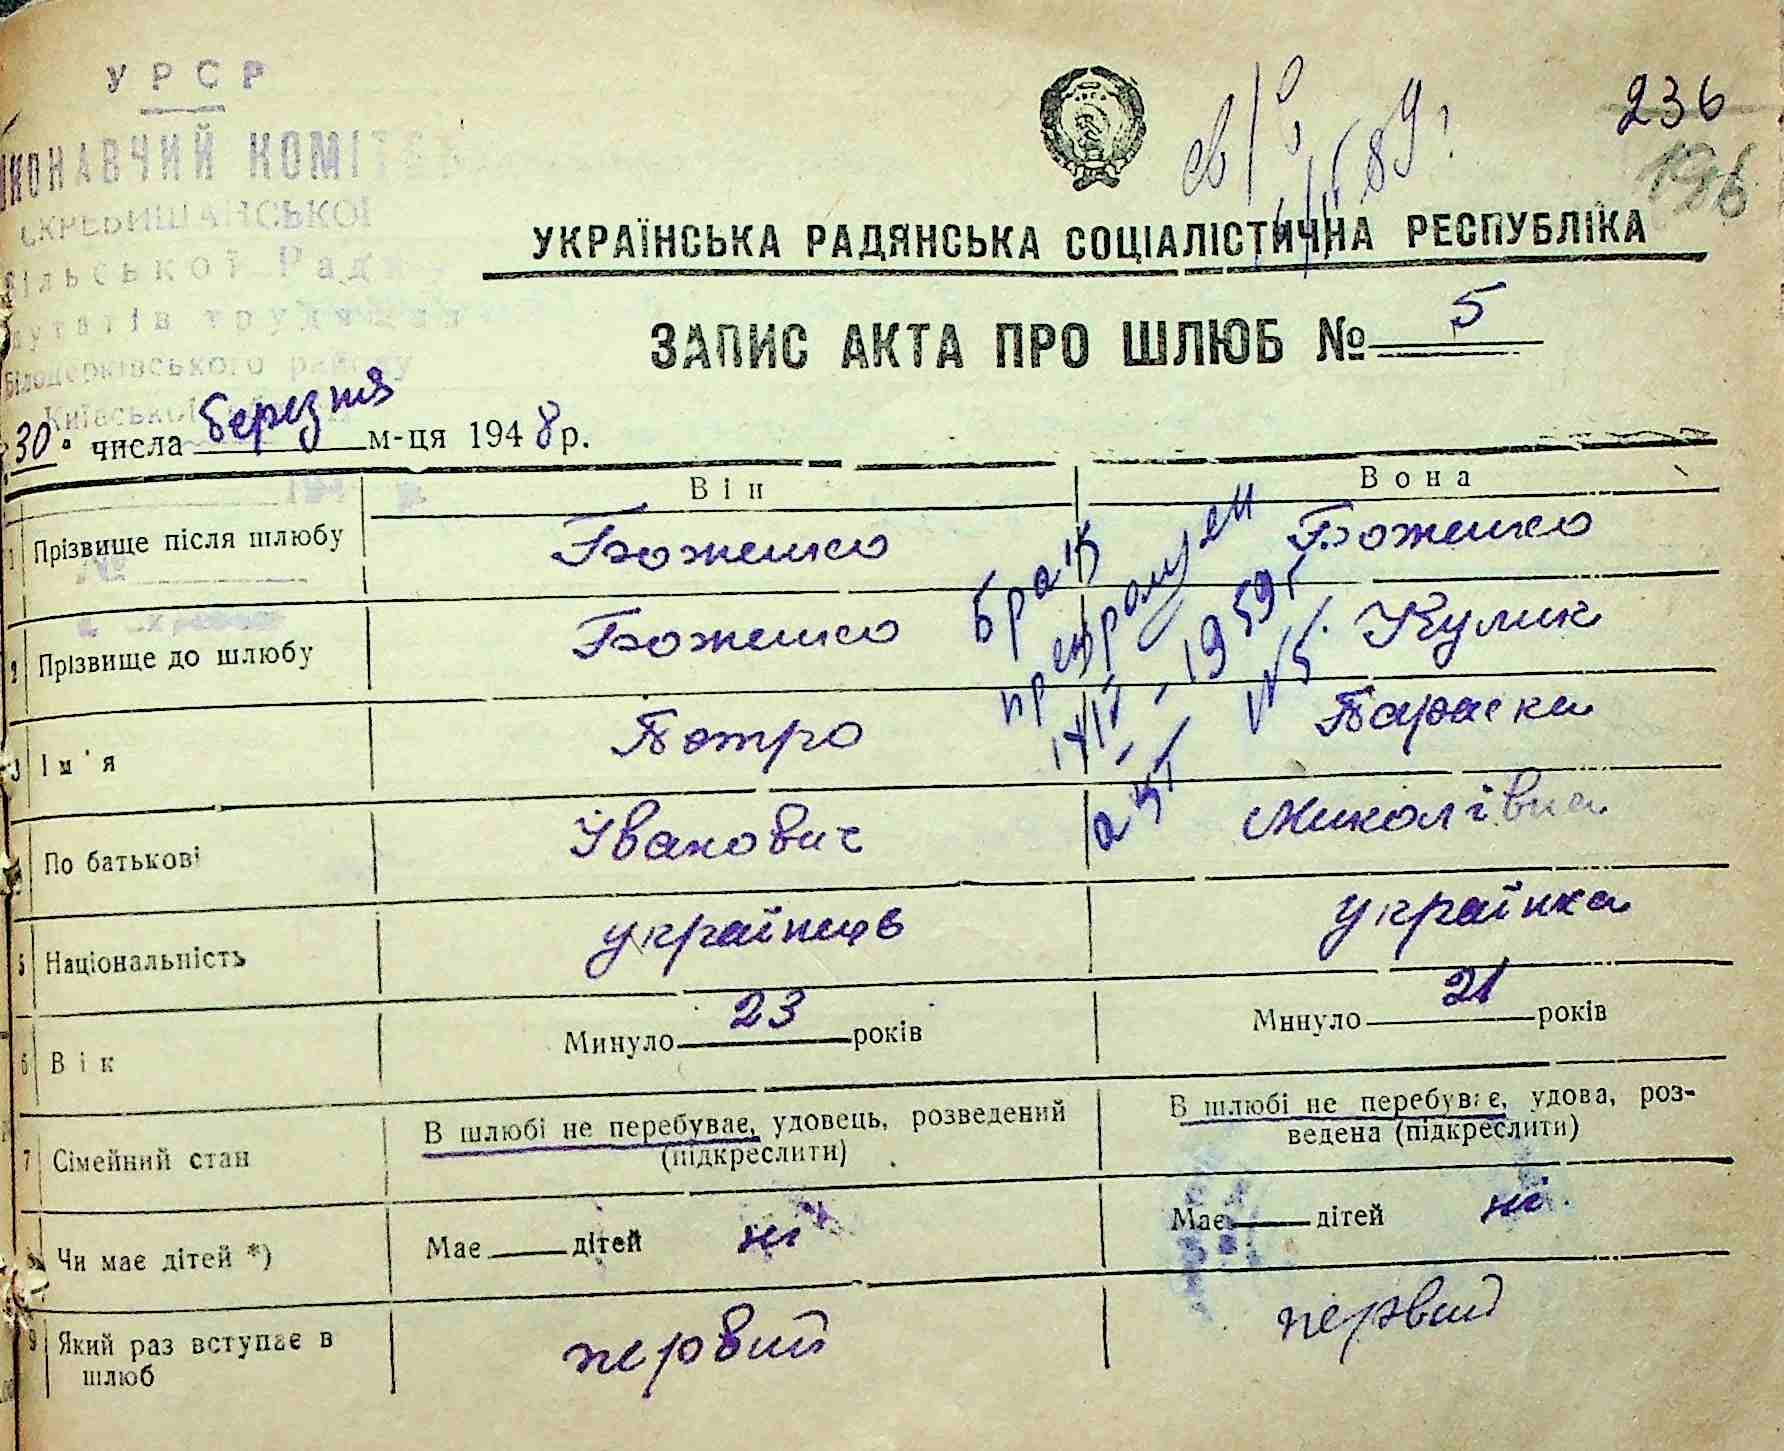 УРСР
ВИКОНАВЧИЙ КОМІТЕТ
СКРЕБИШАНСЬКОЇ
Сільської Ради
депутатів трудящих
Білоцерківського району
Київської
236
196
св/о
89 г.
УКРАЇНСЬКА РАДЯНСЬКА СОЦІАЛІСТИЧНА РЕСПУБЛІКА
ЗАПИС АКТА ПРО ШЛЮБ № 5
30 числа березня м-ця 1948 р.
Він Вона
1 Прізвище після шлюбу Боженко Боженко
2 Прізвище до шлюбу Боженко Кулик
3 Ім'я Петро Параска
4 По батькові Іванович Миколівна
5 Національність українець українка
6 Вік Минуло 23 років Минуло 21 років
7 Сімейний стан В шлюбі не перебуває, удовець, розведений (підкреслити) В шлюбі не перебуває, удова, роз-
ведена (підкреслити)
8 Чи має дітей *) Має дітей ні Має дітей ні
9 Який раз вступає в шлюб первий первий
Брак
1959 г.
акт №5.